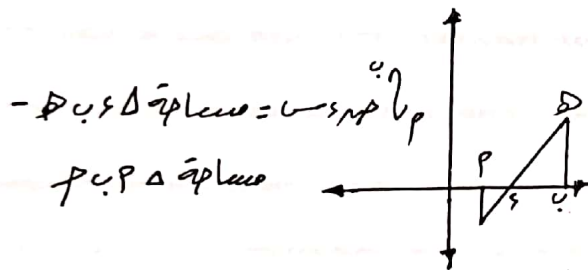 ∫ م ب صہ ءس = مساحة Δ ءبهـ -
مساحة Δ م ب
هـ
م
ء
ب